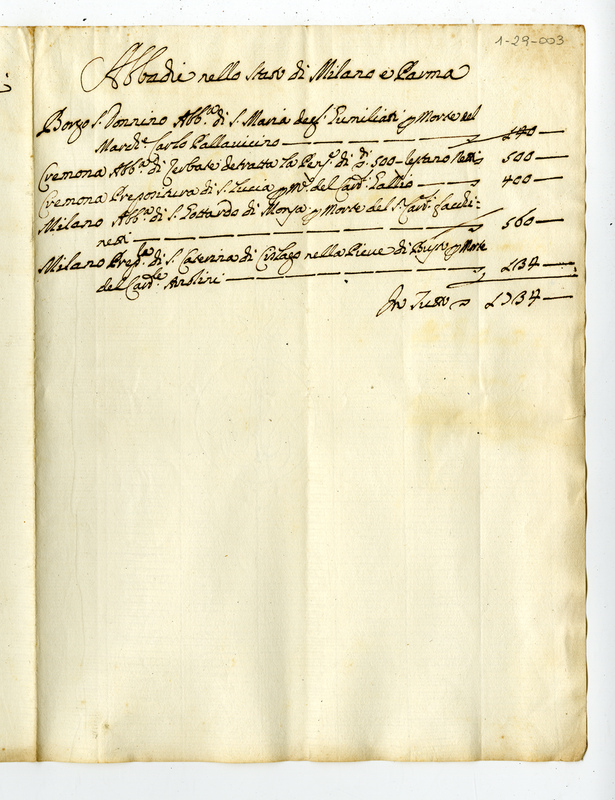 1-29-003
Abbadie nello Stato di Milano e Parma
Borgo S. Donnino Abb.ª di S. Maria degl. Humiliati p Morte del
March.e Carlo Pallavicino — 140 —
Cremona Abb.ª di Zerbate detratta la Pens.e di d.di 500 – restano Netti 500 —
Cremona Prepositura di S. Lucia p m.e del Card. Gallio — 400 —
Milano Abb.ª di S. Gottardo di Monza p Morte del S.r Card. Facchi=
netti — 560 —
Milano Prep.la di S. Caterina di Cislago nella Pieve di Busto p Morte
del Card.le — 134 —
In Tutto 1734 —